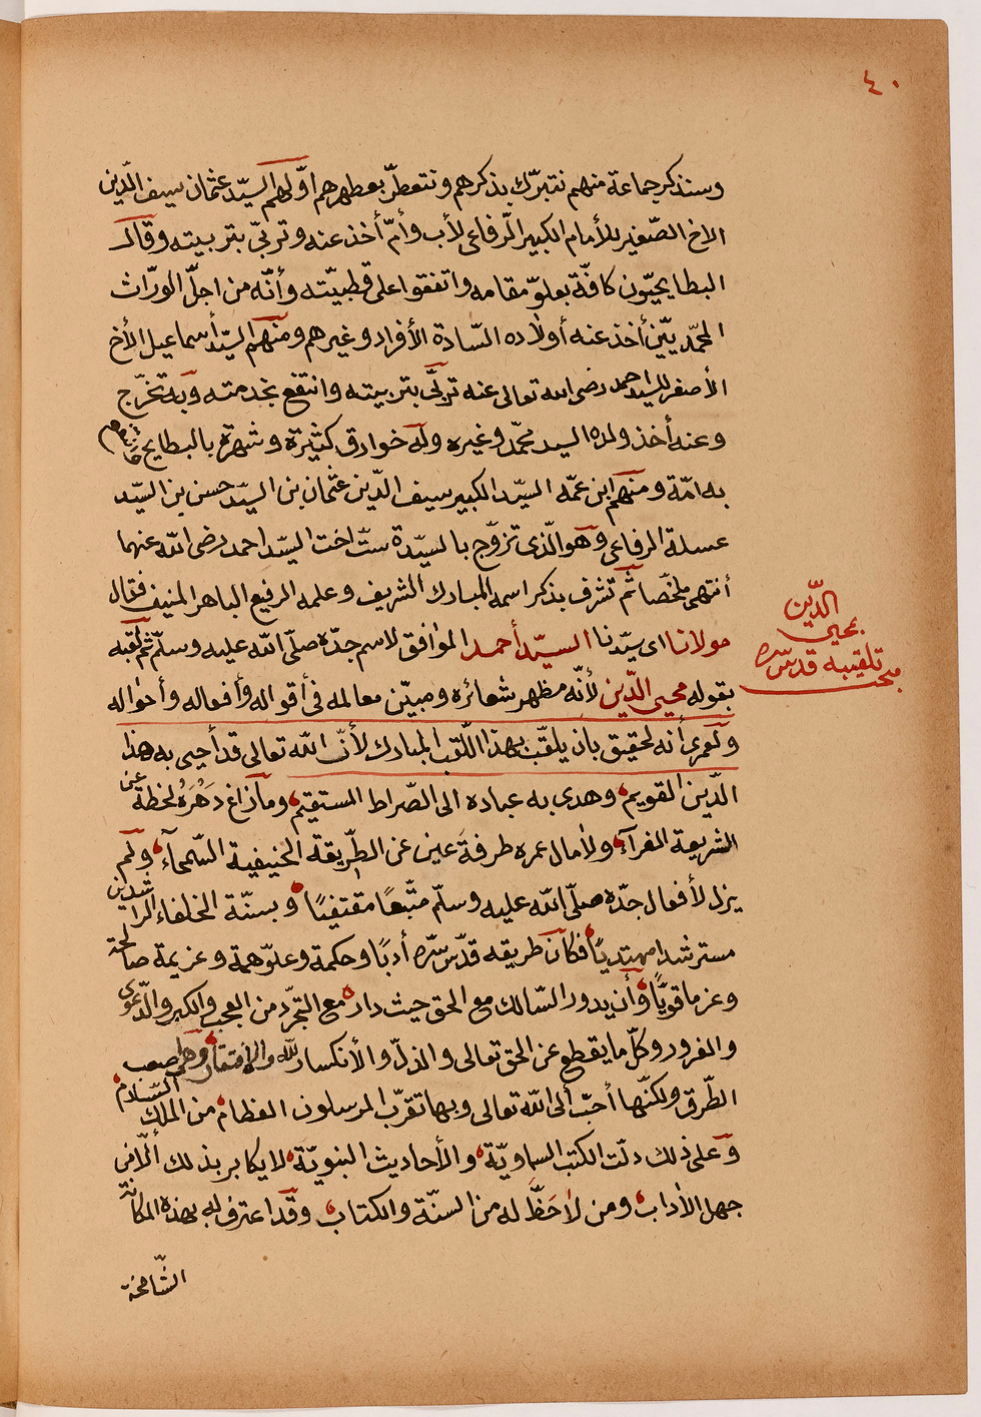 ٤٠
وسنذكر جماعة منهم نتبرّك بذكرهم ونتعطّر بعطرهم اوّلهم السيّد عثمان سيف الدّين
الاخ الصّغير للأمام الكبير الرّفاعى لأب وأمّ أخذ عنه وتربّى بتربيته وقال
البطايحيّون كافّة بعلوّ مقامه واتفقوا على قطبيّته وأنّه من اجلّ الورّاث
المحمّديّين أخذ عنه أولاده السّادة الأفراد وغيرهم ومنهم السيّد أسماعيل الأخ
الأصغر للسيد احمد رضى الله تعالى عنه تربّى بتربيته وانتفع بخدمته وبه تخرّج
وعنه أخذ ولده السيد محمّد وغيره وله خوارق كثيرة وشهرة بالبطايح
به امّة ومنهم ابن عمّه السيّد الكبير سيف الدّين عثمان بن السيّد حسن بن السيّد
عسلة الرفاعى وهو الّذى تزوّج بالسيّدة ستّ اخت السيّد احمد رضى الله عنهما
أنتهى ملخّصا ثمّ تشرف بذكر اسمه المبارك الشريف وعلمه الرفيع الباهر المنيف فقال
مولانا اى سيّدنا السيّد أحمد الموافق لاسم جدّه صلّى الله عليه وسلّم ثمّ لقبه
بقوله محيى الدّين لأنّه مظهر شعائره ومبيّن معالمه فى أقواله وأفعاله وأحواله
ولعمرى أنه لحقيق بان يلقّب بهذا اللّقب المبارك لأنّ الله تعالى قد أحيى به هذا
الدّين القويم وهدى به عباده الى الصّراط المستقيم وما زاغ دَهْرَهُ لحظة عن
الشريعة الغرآء ولا مال عمره طرفة عين عن الطّريقة الحنيفية السّمحآء ولم
يزل لأفعال جدّه صلّى الله عليه وسلّم متّبعًا مقتفيًا وبسنّة الخلفاء الراشدين
مسترشدا مهتديًا فكان طريقه قدّس سرّه أدبًا وحكمة وعلوّ همة وعزيمة صالحة
وعزما قويًّا وأن يدور السّالك مع الحق حيث دار مع التجرّد من العجب والكبر والدّعوى
والغرور وكلّ ما يقطع عن الحق تعالى والذلّ والأنكسار لله والافتقار وهى صعب
الطّرق ولكنّها أحبّ ألى الله تعالى وبها تقرّب المرسلون العظام من الملك السّلام
وعلى ذلك دلّت الكتب السماويّة والأحاديث النبويّة لا يكابر بذلك ألّا من
جهل الأداب ومن لا حَظَّ له من السنّة والكتاب وقد اعترف له بهذه المكانة
الشّامخة
مبحث
تلقيبه قدّس سره
بمحيى
الدّين